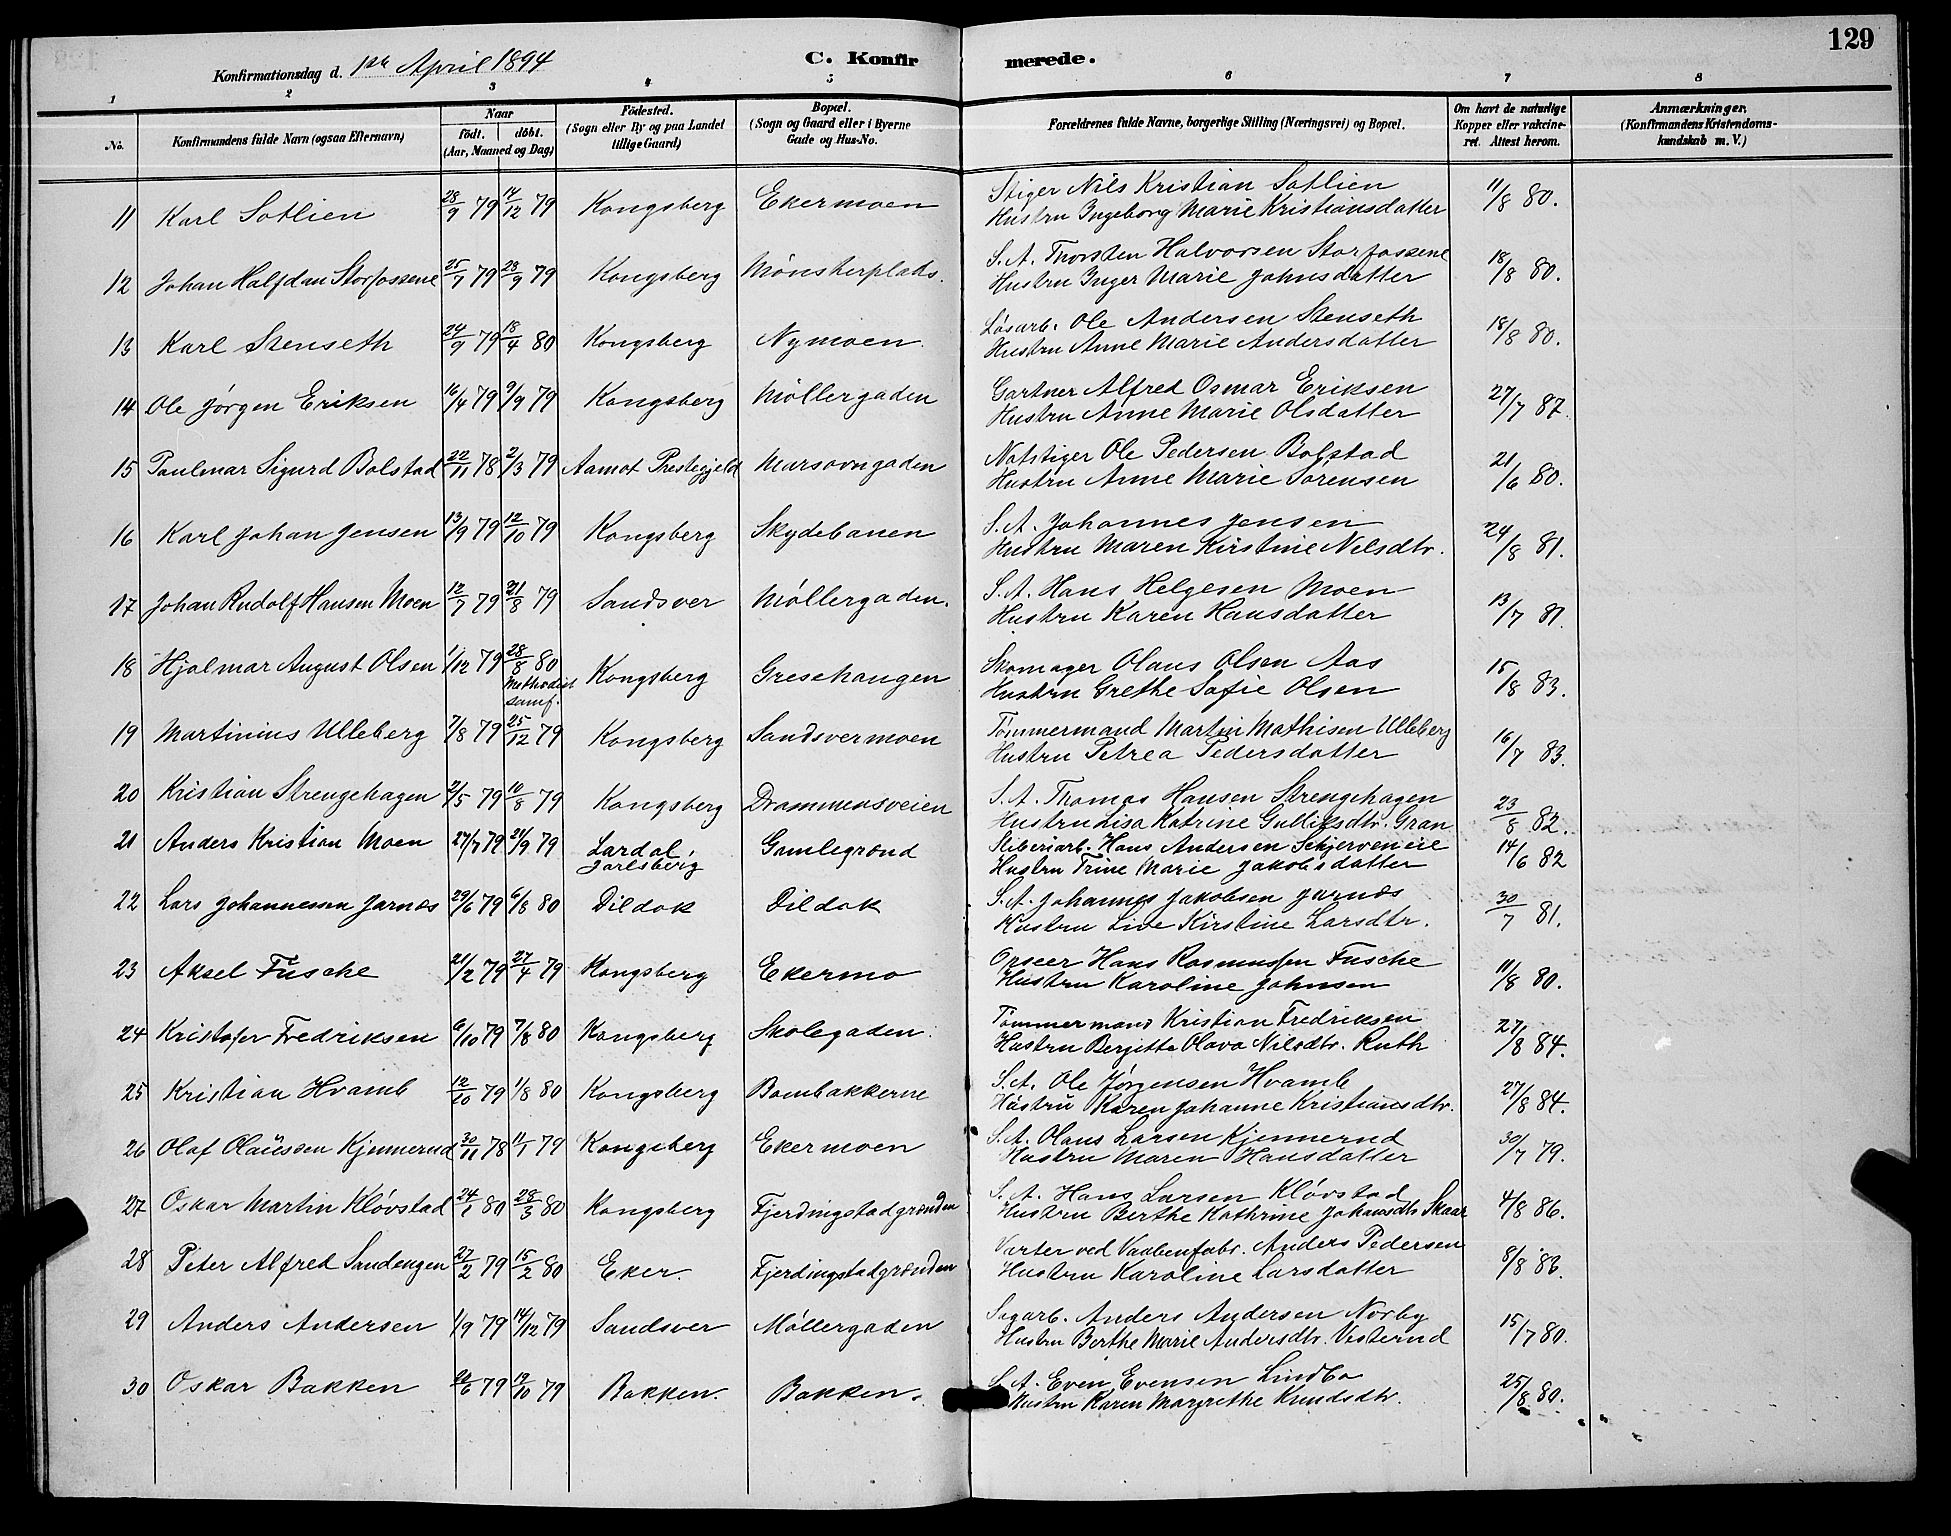 129
Konfirmationsdag d. 1ste April 1894
C. Konfirmerede.
1 2 3 4 5 6 7 8
No.
Konfirmandens fulde Navn (ogsaa Efternavn)
Naar
födt. döbt.
(Aar, Maaned og Dag)
Födested.
(Sogn eller By og paa Landet
tillige Gaard)
Bopæl.
(Sogn og Gaard eller i Byerne
Gade og Hus-No.
Forældrenes fulde Navne, borgerlige Stilling (Næringsvei) og Bopæl.
Om havt de naturlige
Kopper eller vakcine-
ret. Attest herom.
Anmærkninger.
(Konfirmandens Kristendoms-
kundskab m. V.)
11 Karl Sotlien 28/9 79 14/12 79 Kongsberg Ekermoen Stiger Nils Kristian Sotlien 11/8 80.
Hustru Ingeborg Marie Kristiansdatter
12 Johan Halfdan Storfossene 25/7 79 28/9 79 Kongsberg Mønsterplads. S. A. Thorsten Halvorsen Storfossene 18/8 80.
Hustru Inger Marie Johnsdatter
13 Karl Stenseth 24/9 79 18/4 80 Kongsberg Nymoen. Løsarb. Ole Andersen Stenseth 18/8 80.
Hustru Anne Marie Andersdatter
14 Ole Jörgen Eriksen 16/4 79 9/9 79 Kongsberg Møllergaden Gartner Alfred Osmar Eriksen 27/7 87.
Hustru Anne Marie Olsdatter
15 Paulmar Sigurd Bolstad 22/11 78 2/3 79 Aamot Prestegjeld Marsovngaden Natstiger Ole Pedersen Bolstad 21/6 80.
Hustru Anne Marie Sörensen
16 Karl Johan Jensen 13/9 79 12/10 79 Kongsberg Skydebanen S. A. Johannes Jensen 24/8 81.
Hustru Maren Kirstine Nilsdtr.
17 Johan Rudolf Hansen Moen 12/7 79 21/8 79 Sandsver Møllergaden. S. A. Hans Helgesen Moen 13/7 81.
Hustru Karen Hansdatter
18 Hjalmar August Olsen 1/12 79 28/8 80 Methodist samf. Kongsberg Gresehaugen Skomager Olaus Olsen Aas 15/8 83.
Hustru Grethe Sofie Olsen
19 Martinius Ulleberg 7/8 79 25/12 79 Kongsberg Sandsvermoen Tömmermand Martin Mathisen Ulleberg 16/7 83.
Hustru Petrea Pedersdatter
20 Kristian Strengehagen 2/5 79 10/8 79 Kongsberg Drammensveien S. A. Thomas Hansen Strengehagen 23/8 82.
Hustru Lisa Katrine Gulliksdtr. Gran
21 Anders Kristian Moen 27/7 79 21/9 79 Lardal, Jarlsberg Gamlegrønd Sliberiarb. Hans Andersen Schjerveneie 14/6 82
Hustru Trine Marie Jakobsdatter
22 Lars Johannessen Jarnæs 29/6 79 6/8 80 Dildok Dildok S. A. Johannes Jakobsen Jarnæs 30/7 81.
Hustru Live Kirstine Larsdtr.
23 Aksel Füsche 21/2 79 27/4 79 Kongsberg Ekermo Opseer Hans Rasmussen Fusche 11/8 80.
Hustru Karoline Johnsen
24 Kristofer Fredriksen 6/10 79 7/8 80 Kongsberg Skolegaden. Tömmermand Kristian Fredriksen 27/8 84.
Hustru Bergitte Olava Nilsdtr. Ruth
25 Kristian Hvamb 12/10 79 1/8 80 Kongsberg Bombakkerne S. A. Ole Jörgensen Hvamb 27/8 84.
Hustrü Karen Johanne Kristiansdtr.
26 Olaf Olaüssen Kjennerud 30/11 78 11/1 79 Kongsberg Ekermoen S. A. Olaus Larsen Kjennerud 30/7 79.
Hustru Maren Hansdatter
27 Oskar Martin Kløvstad 24/1 80 28/3 80 Kongsberg Fjerdingstadgrønden S. A. Hans Larsen Kløvstad 4/8 86.
Hustru Berthe Kathrine Johansdtr Skaar
28 Peter Alfred Sandengen 27/2 79 15/2 80 Eker. Fjerdingstadgrønden Varter ved Vaabenfabr. Anders Pedersen 8/8 86.
Hustru Karoline Larsdatter
29 Anders Andersen 1/9 79 14/12 79 Sandsver Møllergaden Sagarb. Anders Andersen Norby 15/7 80.
Hustru Berthe Marie Andersdtr. Visterud
30 Oskar Bakken 22/6 79 19/10 79 Bakken. Bakken. S. A. Even Evensen Lindbo 25/8 80.
Hustru Karen Margrethe Knudsdtr.